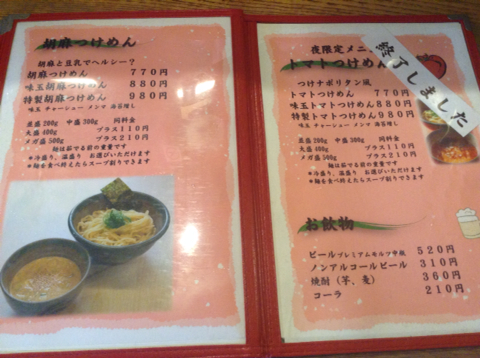 胡麻つけめん
胡麻と豆乳でヘルシー？
胡麻つけめん 770円
味玉胡麻つけめん 880円
特製胡麻つけめん 980円
味玉 チャーシュー メンマ 海苔増し
並盛200g 中盛300g 同料金
大盛400g プラス110円
メガ盛500g プラス210円
麺は茹でる前の重量です
*冷盛り、温盛り お選びいただけます
*麺を食べ終えたらスープ割りできます
夜限定メニ
トマトつけめん
終了しました
つけナポリタン風
トマトつけめん 770円
味玉トマトつけめん 880円
特製トマトつけめん 980円
味玉 チャーシュー メンマ 海苔増し
並盛200g 中盛300g 同料金
大盛400g プラス110円
メガ盛500g プラス210円
麺は茹でる前の重量です
*冷盛り、温盛り お選びいただけます
*麺を食べ終えたらスープ割りできます
お飲物
ビール プレミアムモルツ中瓶 520円
ノンアルコールビール 310円
焼酎（芋、麦） 360円
コーラ 210円